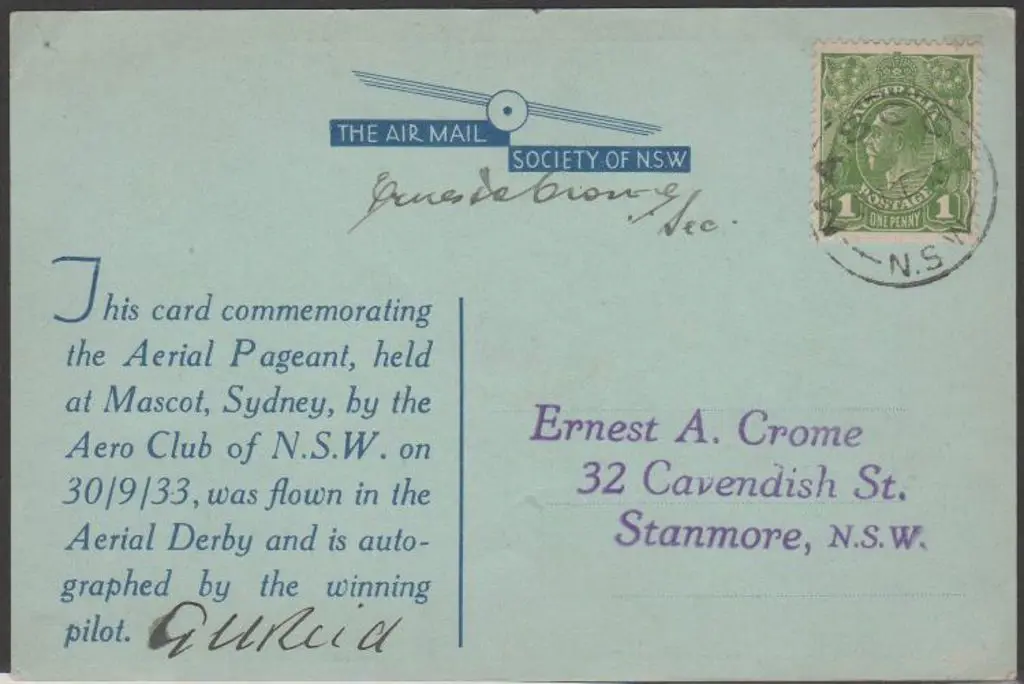 THE AIR MAIL
SOCIETY OF N.S.W
Ernest A Crome
Sec.
AUSTRALIA
POSTAGE
1 ONE PENNY 1
MASCOT
N.S.W
This card commemorating
the Aerial Pageant, held
at Mascot, Sydney, by the
Aero Club of N.S.W. on
30/9/33, was flown in the
Aerial Derby and is auto-
graphed by the winning
pilot. G U Reid
Ernest A. Crome
32 Cavendish St.
Stanmore, N.S.W.